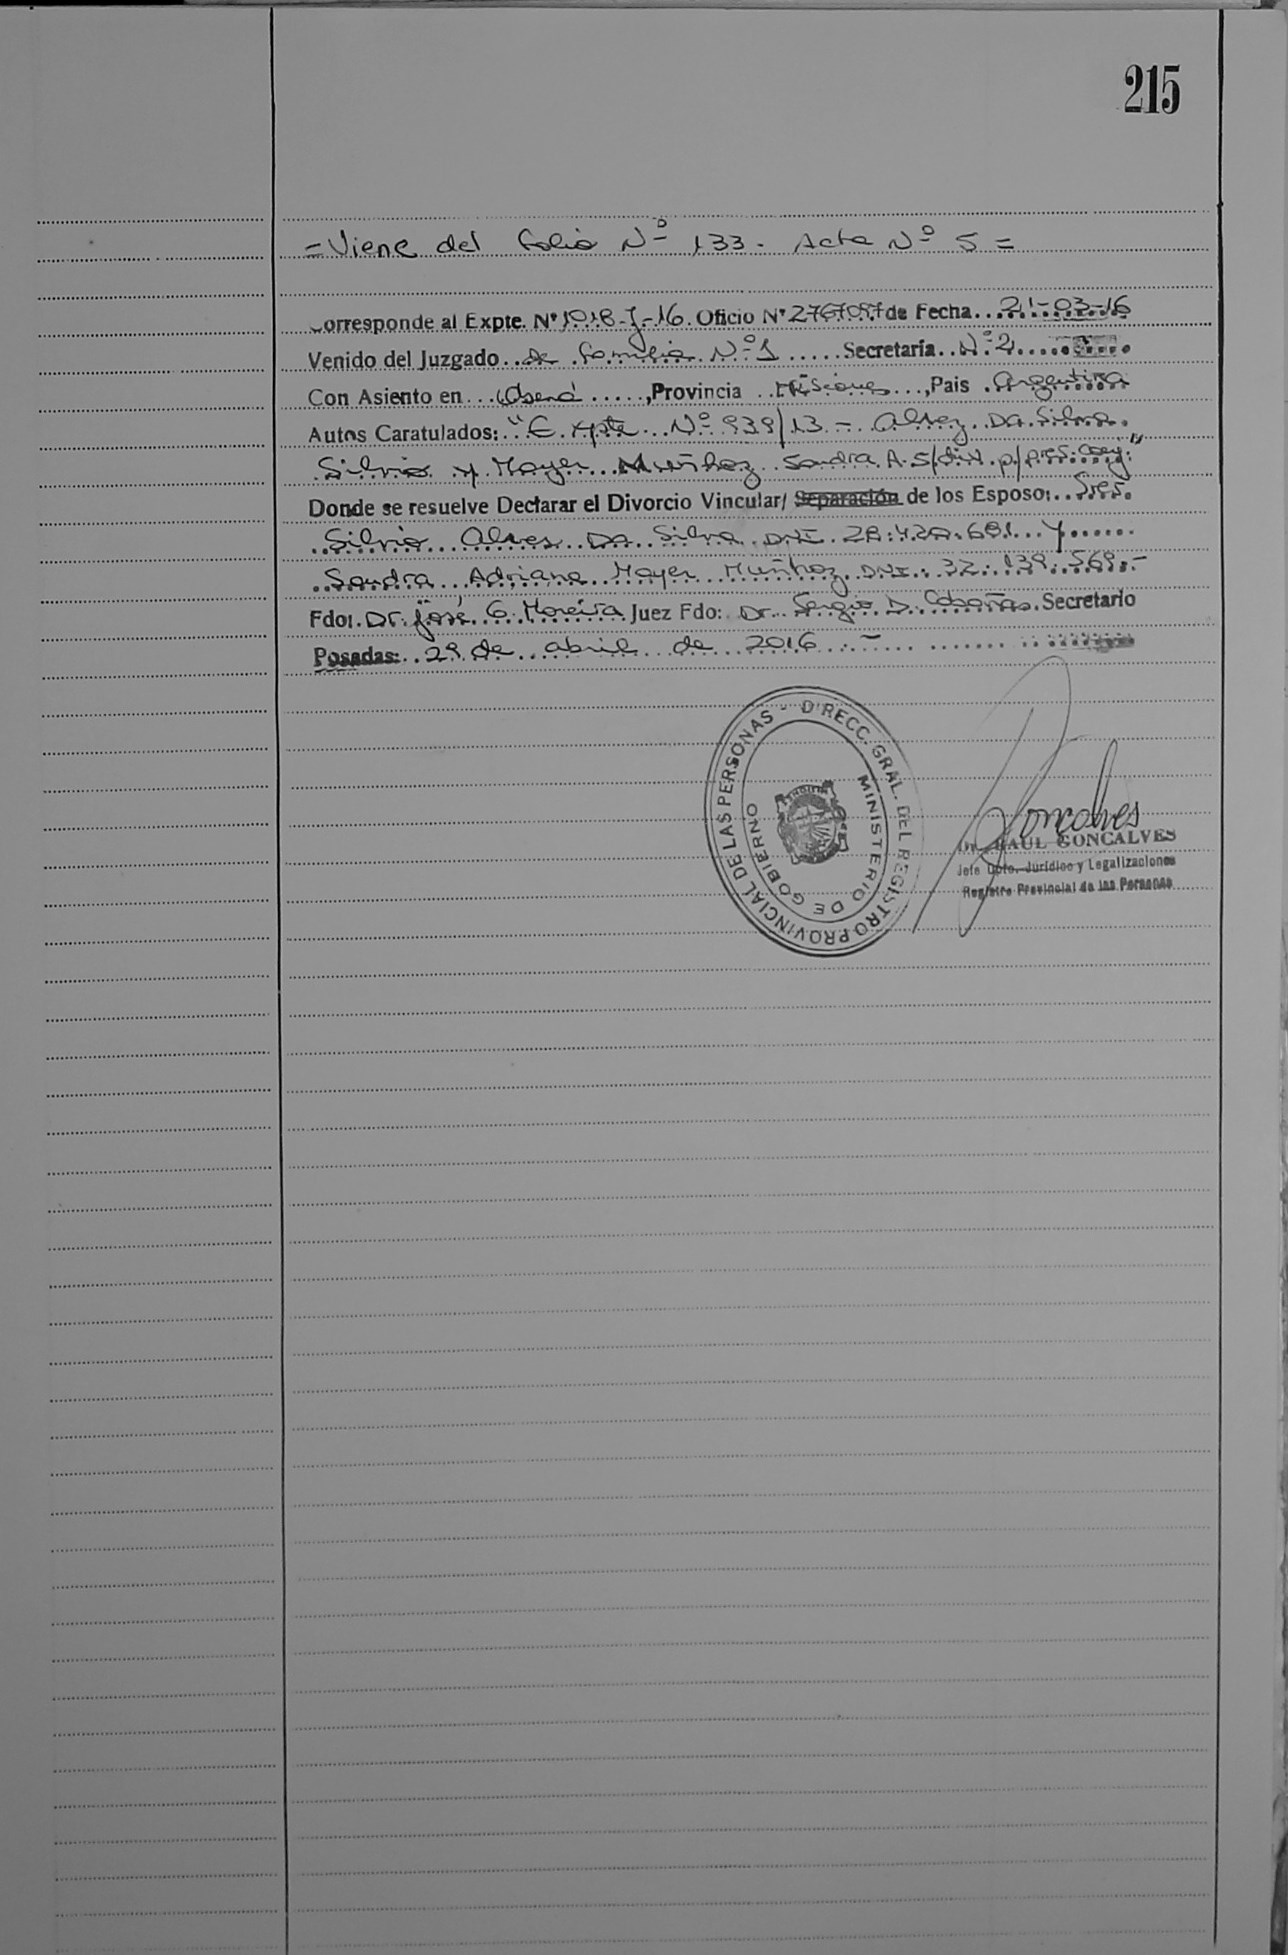 215
= Viene del folio Nº 133 - Acta Nº 5 =
Corresponde al Expte. Nº 1018-J-16. Oficio Nº de Fecha 21-03-16
Venido del Juzgado de familia Nº 1 Secretaría Nº 2
Con Asiento en Oberá, Provincia Misiones, Pais Argentina
Autos Caratulados: "Expte Nº 939/13 - Alvez Da Silva
Silvio y Mayer Muñhoz Sandra A. S/div. p/pres. conj."
Donde se resuelve Declarar el Divorcio Vincular/ Separación de los Esposo: Sres.
Silvio Alves Da Silva DNI 28.420.681 y
Sandra Adriana Mayer Muñhoz DNI: 32.139.568.-
Fdo: Dr. José G. Moreira Juez Fdo: Dr. Sergio D. Cabañas Secretario
Posadas: 29 de abril de 2016 -
DIRECC. GRAL. DEL REGISTRO PROVINCIAL DE LAS PERSONAS -
MINISTERIO DE GOBIERNO
Goncalves
Dr. RAUL GONCALVES
Jefe Dpto. Jurídico y Legalizaciones
Registro Provincial de las Personas